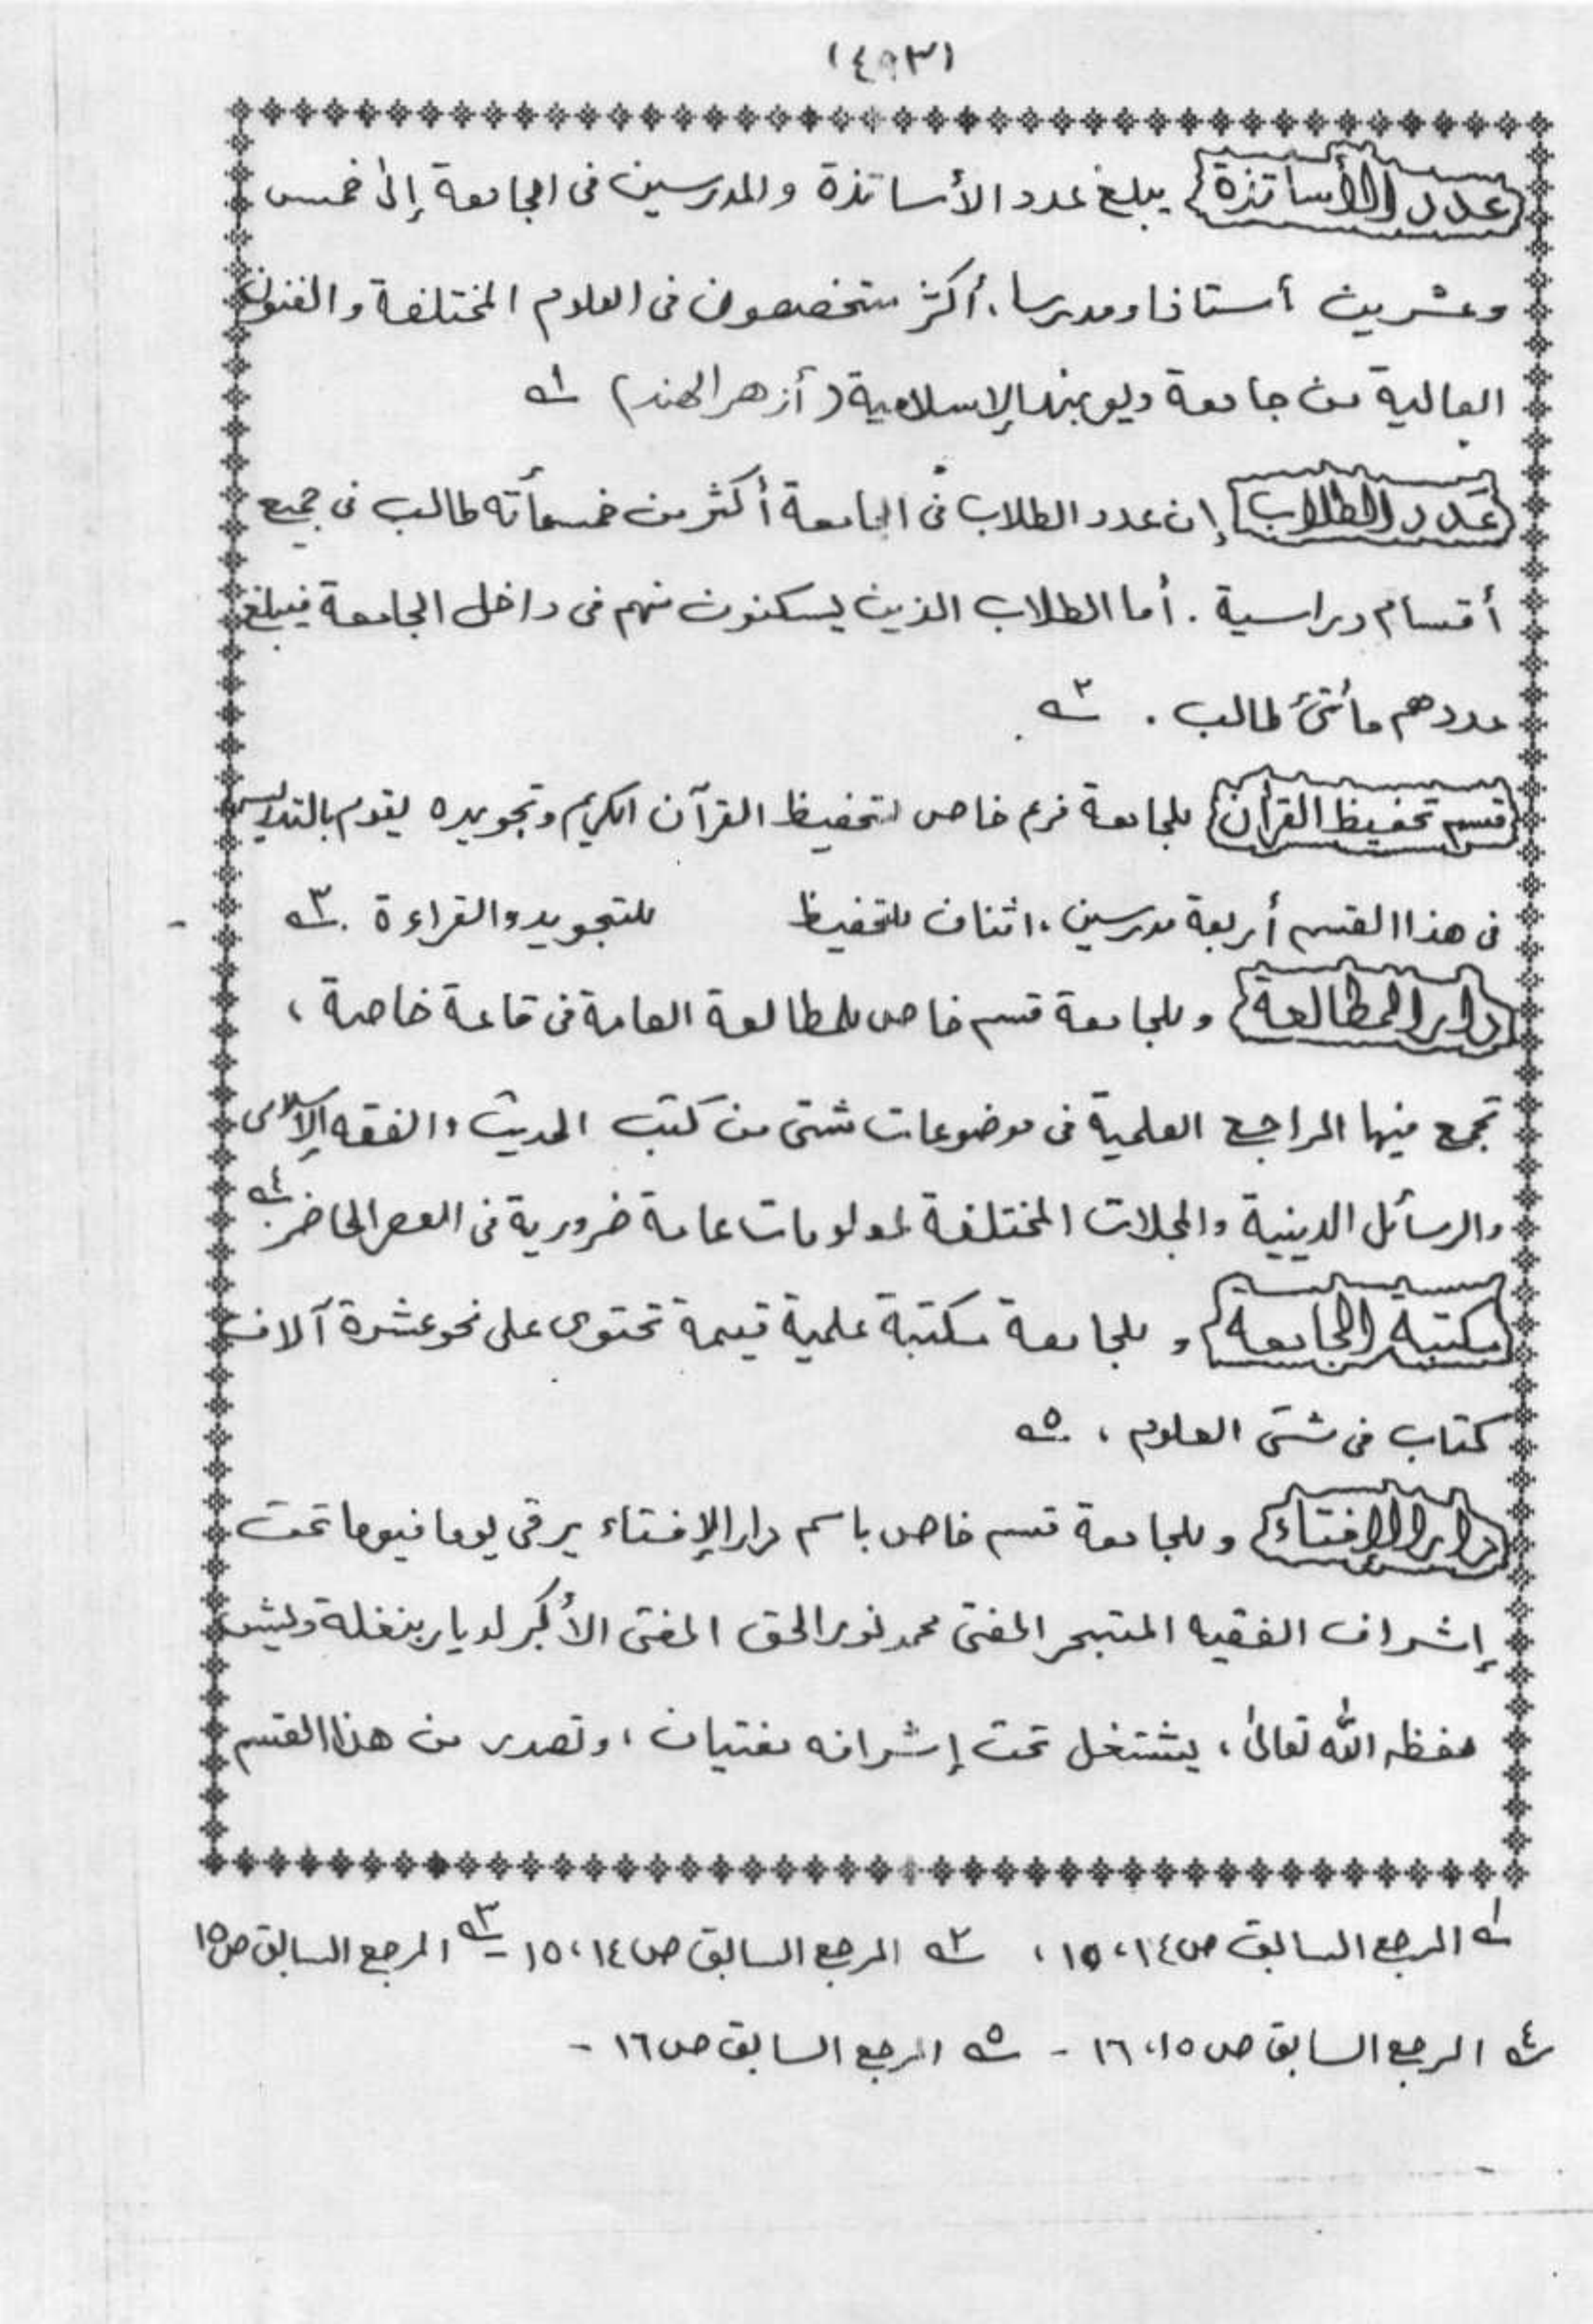 (٤٩٣)
عدد الأساتذة يبلغ عدد الأساتذة والمدرسين فى الجامعة إلى خمس
وعشرين أستاذا ومدرسا، أكثر متخصصون فى العلوم المختلفة والفنون
العالية من جامعة ديوبند الإسلامية (أزهر الهند) ١ـه
عدد الطلاب إن عدد الطلاب فى الجامعة أكثر من خمسمأته طالب فى جميع
أقسام دراسية . أما الطلاب الذين يسكنون منهم فى داخل الجامعة فيبلغ
عددهم مأتئ طالب . ٢ـه
قسم تحفيظ القرأن للجامعة فرع خاص لتحفيظ القرآن الكريم وتجويده يقوم بالتدريس
فى هذا القسم أربعة مدرسين، اثنان للتحفيظ للتجويد والقراءة . ٣ـه
دار المطالعة وللجامعة قسم خاص للمطالعة العامة فى قاعة خاصة ،
تجمع فيها المراجع العلمية فى موضوعات شتى من كتب الحديث والفقه الإسلامى
والرسائل الدينية والمجلات المختلفة لمعلومات عامة ضرورية فى العصر الحاضر. ٤ـه
مكتبة الجامعة وللجامعة مكتبة علمية قيمة تحتوى على نحو عشرة آلاف
كتاب فى شتى العلوم ، ٥ـه
دار الإفتاء وللجامعة قسم خاص باسم دار الإفتاء يرقى يوما فيوما تحت
إشراف الفقيه المتبحر المفتى محمد نور الحق المفتى الأكبر لديار بنغلة ديش
حفظه الله تعالىٰ ، يشتغل تحت إشرافه مفتيان ، وتصدر من هذا القسم
١ـه المرجع السابق ص ١٤،١٥ ، ٢ـه المرجع السابق ص ١٤،١٥ - ٣ـه المرجع السابق ص ١٥
٤ـه المرجع السابق ص ١٥،١٦ - ٥ـه المرجع السابق ص ١٦ -